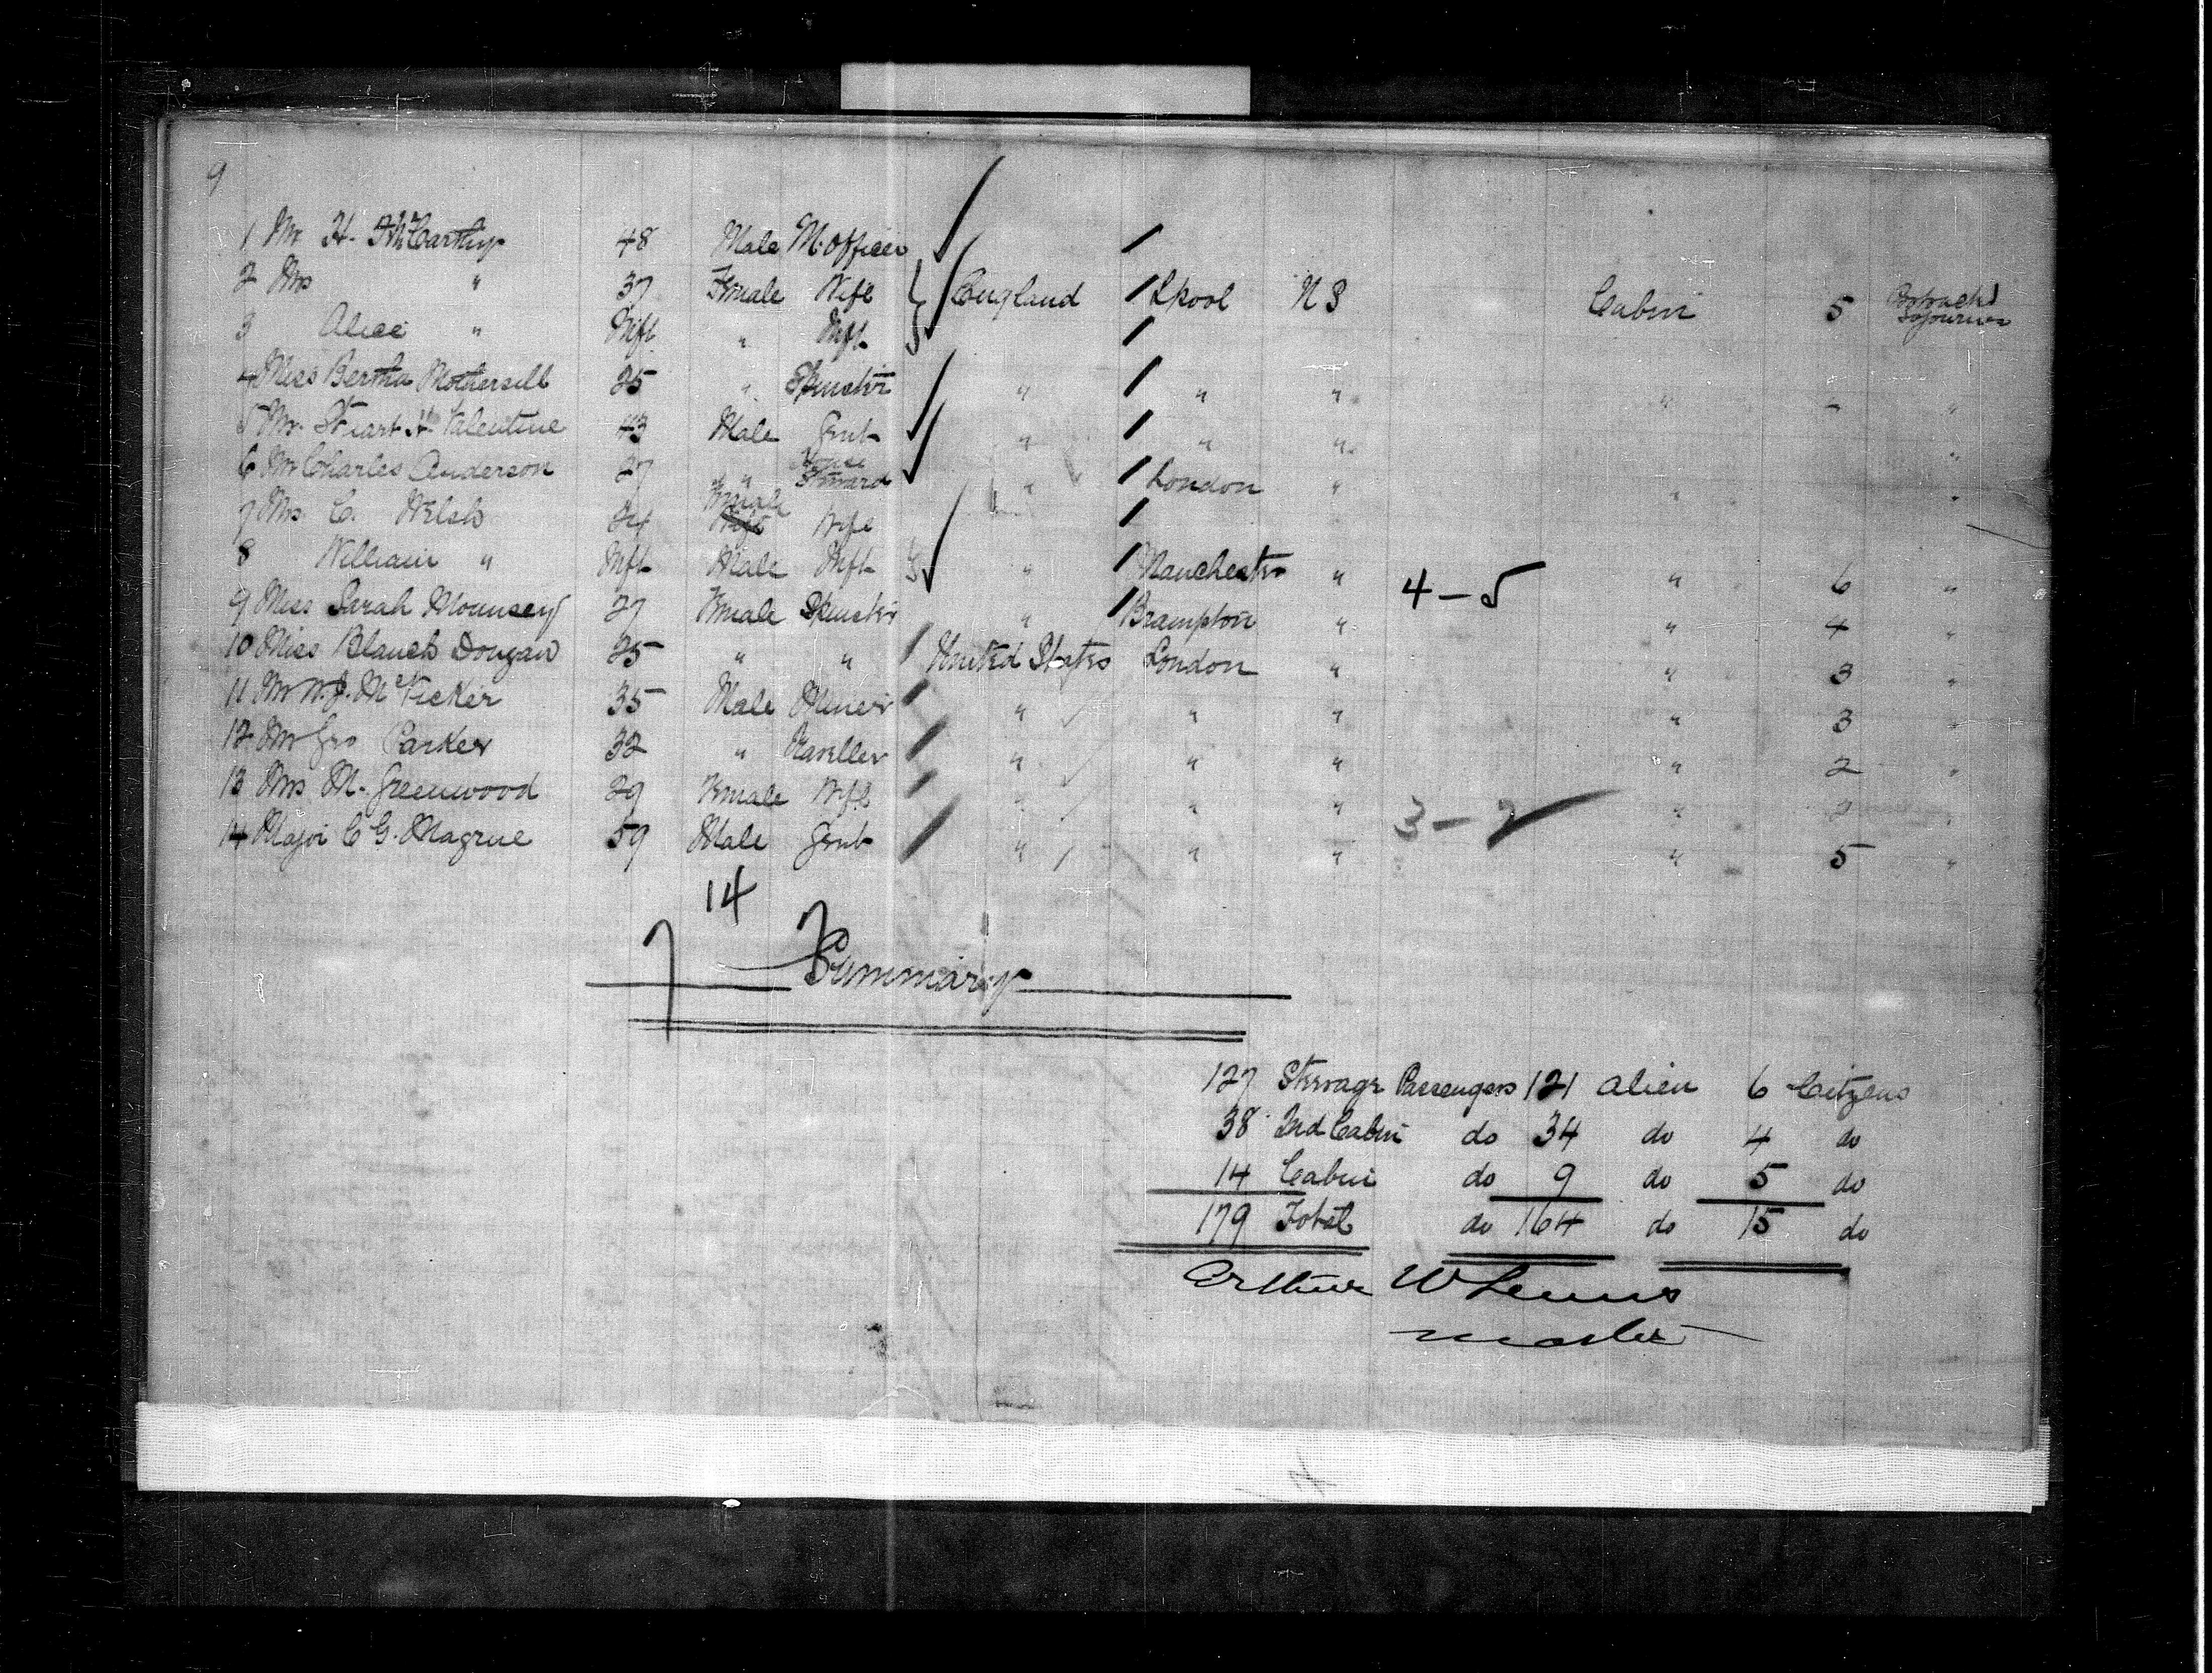 9
1 Mr H. McCarthy 48 Male M. Officer
2 Mrs " 37 Female Wife England Lpool N S Cabin 5 Protracted Sojourn
3 Alice " Inft " Inft
4 Miss Bertha Mothersill 25 " Spinster " " " " "
5 Mr. Stuart Valentine 43 Male Gent " " " "
6 Mr Charles Anderson 27 " House Steward " London " " "
7 Mrs C. Welsh 24 Female Wife
8 William " Inft Male Inft " Manchester " 4-5 " 6 "
9 Miss Sarah Mounsey 27 Female Spinster " Brampton " " 4 "
10 Miss Blanch Dougan 25 " " United States London " " 3 "
11 Mr W. J. McVicker 35 Male Miner " " " " 3 "
12 Mr Geo Parker 32 " Traveller " " " " 2 "
13 Mrs M. Greenwood 29 Female Wife " " " 3-2 " 2 "
14 Major C G. Magrue 59 Male Gent " " " " 5 "
14
Summary
127 Steerage Passengers 121 Alien 6 Citzens
38 2nd Cabin do 34 do 4 do
14 Cabin do 9 do 5 do
179 Total do 164 do 15 do
Arthur W
master